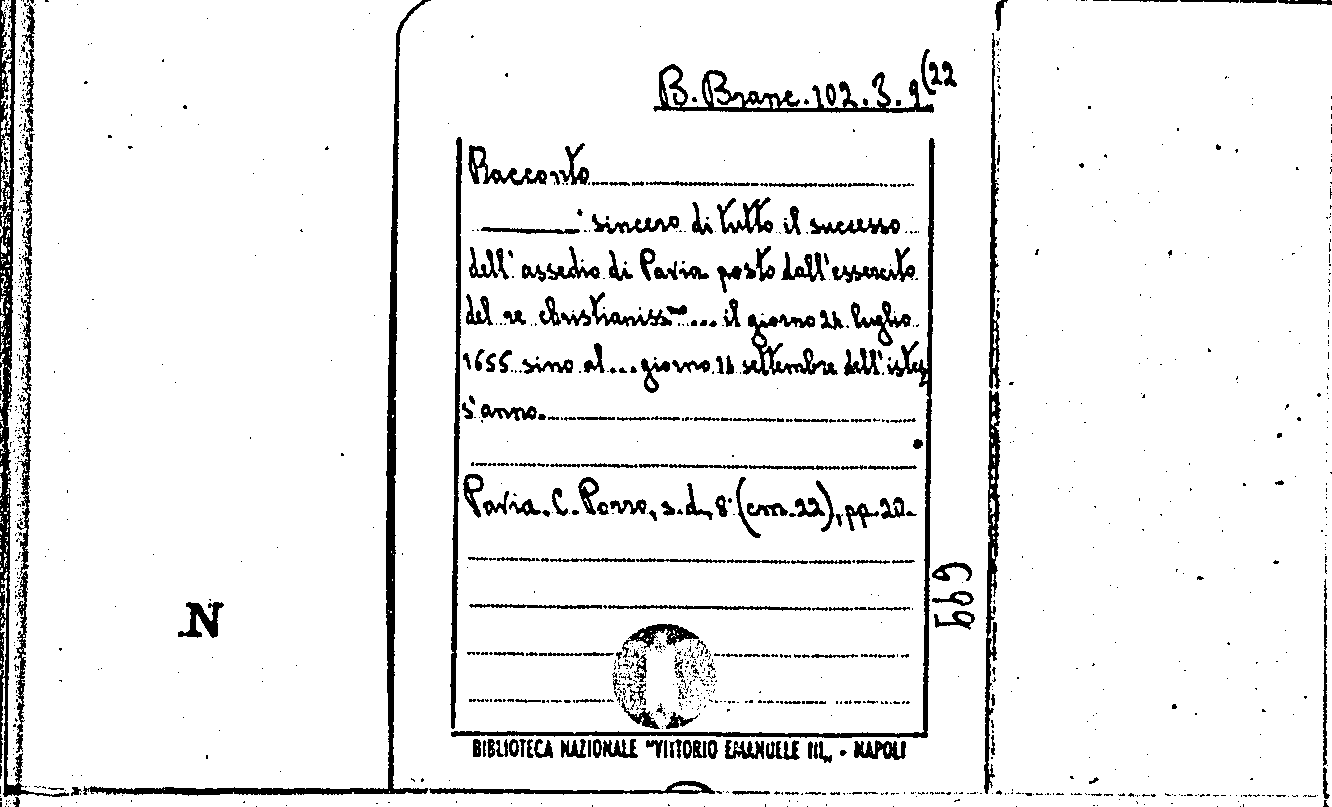 B. Branc. 102. 3. 9(22
Racconto
_______ sincero di tutto il successo
dell'assedio di Pavia posto dall'essercito
del re christianiss.mo ... il giorno 24 luglio
1655 sino al ... giorno 14 settembre dell'istes
s'anno.
Pavia. C. Porro, s.d., 8° (cm. 22), pp. 20.
699
N
BIBLIOTECA NAZIONALE "VITTORIO EMANUELE III„ - NAPOLI